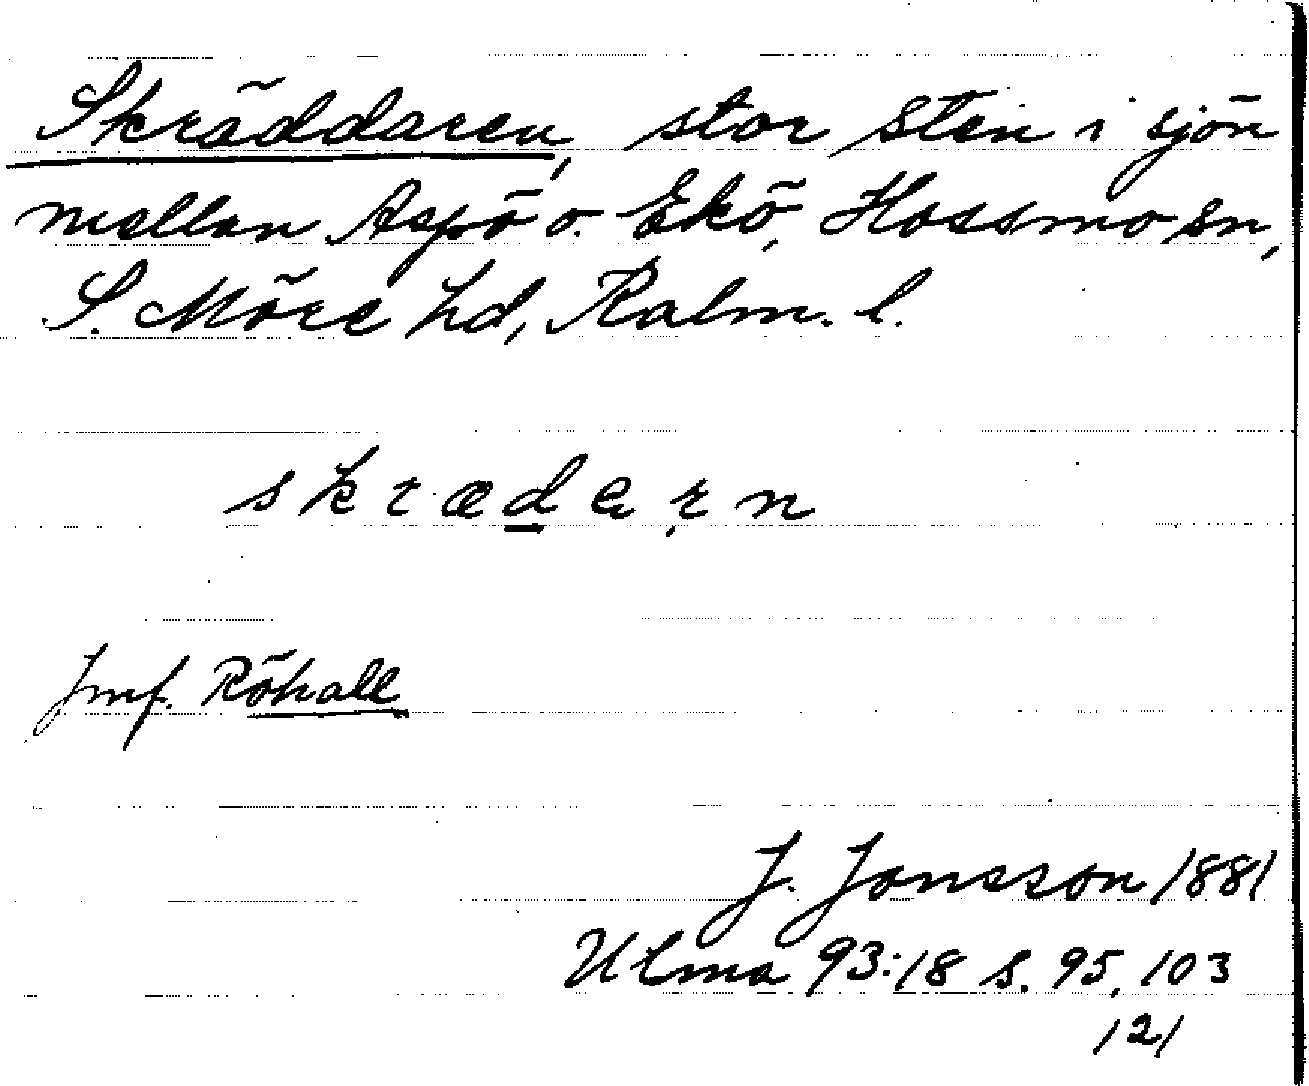 Skräddaren, stor sten i sjön
mellan Aspö o. Ekö, Hossmo sn,
S. Möre hd, Kalm. l.
skrædarn
Jmf. Röhäll
J. Jonsson 1881
Ulma 93:18 s. 95, 103
121